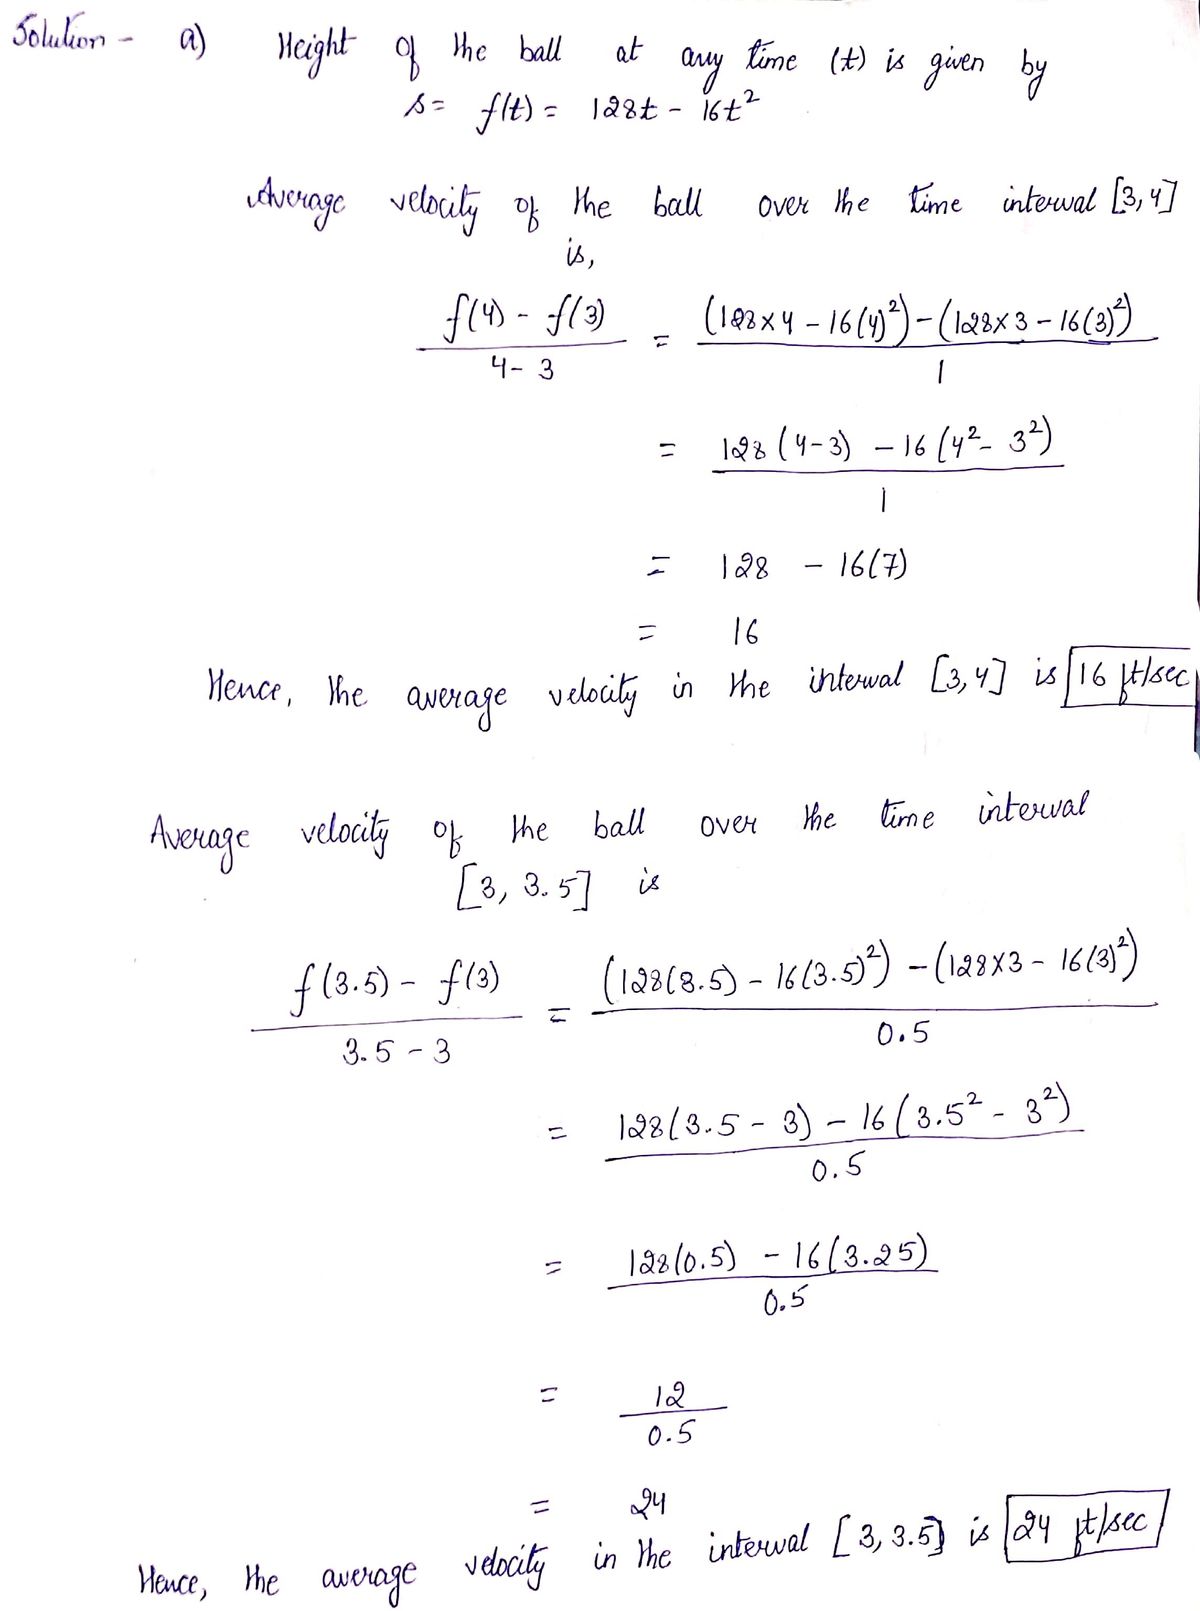 Solution - a) Height of the ball at any time (t) is given by
s = f(t) = 128t - 16t²
Average velocity of the ball over the time interval [3,4]
is,
f(4) - f(3) / 4 - 3 = (128×4 - 16(4)²) - (128×3 - 16(3)²) / 1
= 128 (4-3) - 16 (4² - 3²) / 1
= 128 - 16(7)
= 16
Hence, the average velocity in the interval [3,4] is 16 ft/sec
Average velocity of the ball over the time interval
[3, 3.5] is
f(3.5) - f(3) / 3.5 - 3 = (128(3.5) - 16(3.5)²) - (128×3 - 16(3)²) / 0.5
= 128(3.5 - 3) - 16(3.5² - 3²) / 0.5
= 128(0.5) - 16(3.25) / 0.5
= 12 / 0.5
= 24
Hence, the average velocity in the interval [3, 3.5] is 24 ft/sec